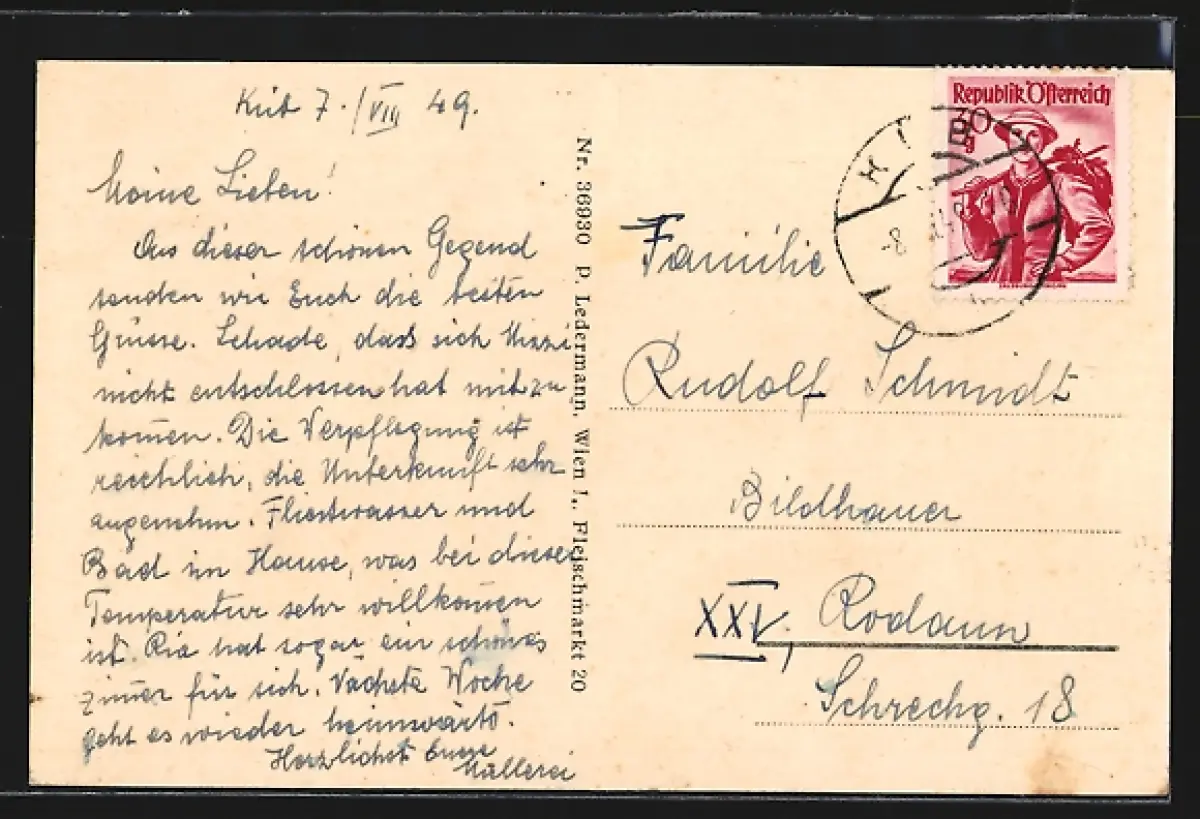 7./VIII 49.
Meine Lieben!
Aus dieser schönen Gegend
senden wir Euch die besten
Grüsse. Schade, dass sich Mizzi
nicht entschlossen hat mitzu
kom̅en. Die Verpflegung ist
reichlich, die Unterkunft sehr
angenehm. Fliesswasser und
Bad im Hause, was bei dieser
Temperatur sehr willkom̅en
ist. Ria hat sogar ein schönes
Zim̅er für sich. Nächste Woche
geht es wieder heimwärts.
Herzlichst Eure
Müllerei
Nr. 36930 P. Ledermann, Wien I., Fleischmarkt 20
Republik Österreich
30
g
-8
Familie
Rudolf Schmidt
Bildhauer
XXV, Rodaun
Schreckg. 18